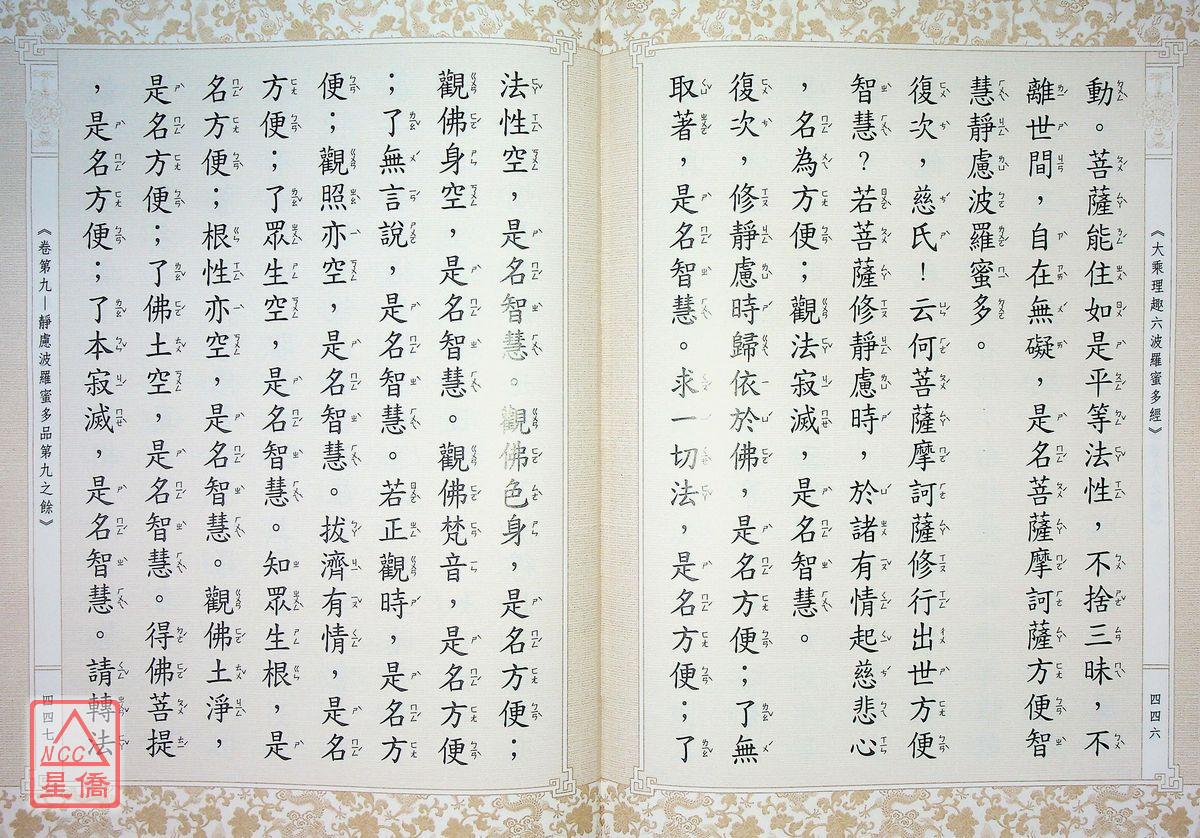 《大乘理趣六波羅蜜多經》
四四六
動。菩薩能住如是平等法性，不捨三昧，不
離世間，自在無礙，是名菩薩摩訶薩方便智
慧靜慮波羅蜜多。
復次，慈氏！云何菩薩摩訶薩修行出世方便
智慧？若菩薩修靜慮時，於諸有情起慈悲心
，名為方便；觀法寂滅，是名智慧。
復次，修靜慮時歸依於佛，是名方便；了無
取著，是名智慧。求一切法，是名方便；了
法性空，是名智慧。觀佛色身，是名方便；
觀佛身空，是名智慧。觀佛梵音，是名方便
；了無言說，是名智慧。若正觀時，是名方
便；觀照亦空，是名智慧。拔濟有情，是名
方便；了眾生空，是名智慧。知眾生根，是
名方便；根性亦空，是名智慧。觀佛土淨，
是名方便；了佛土空，是名智慧。得佛菩提
，是名方便；了本寂滅，是名智慧。請轉法
《卷第九－靜慮波羅蜜多品第九之餘》
四四七
NCC
星僑